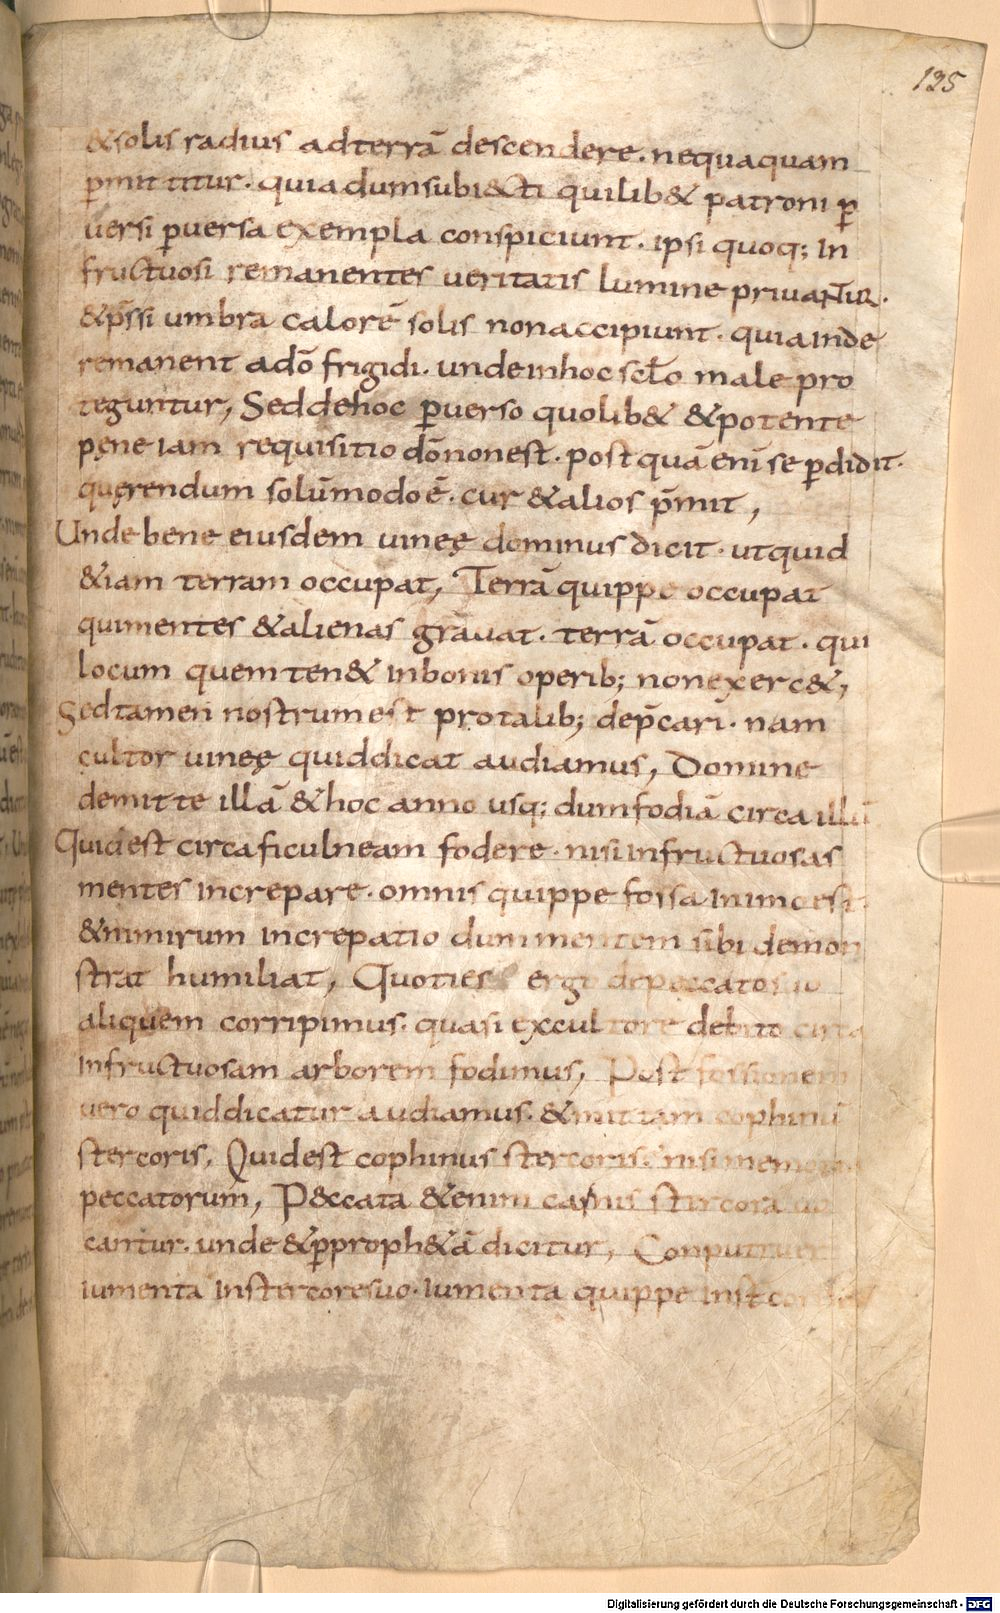 135
&solis radius adterrā descendere. nequaquam
p̄mittitur. quia dumsubi&ti quilib& patroni ꝑ
uersi ꝑuersa exempla conspiciunt. ipsi quoq; In
fructuosi remanentes ueritatis lumine priuantur.
&p̄ssi umbra calorē solis nonaccipiunt. quiainde
remanent adō frigidi. undeinhoc scl̄o male pro
teguntur, Seddehoc ꝑuerso quolib& &potente
pęne iam requisitio dōnonest. postquā enī se ꝑdidit.
quęrendum solūmodo ē. cur &alios p̄mit,
Unde bene eiusdem uineę dominus dicit. utquid
&iam terram occupat, Terrā quippe occupat
quimentes &alienas grauat. terrā occupat. qui
locum quem ten& inbonis operib; nonexerc&,
Sedtamen nostrum est protalib; dep̄cari. nam
cultor uineę quiddicat audiamus, Domine
demitte illā &hoc anno usq; dumfodiā circa illū
Quid est circaficulneam fodere. nisi Infructuosas
mentes increpare. omnis quippe fossa inimo est.
&nimirum increpatio dum mentem sibi demon
strat humiliat, Quoties ergo depeccato suo
aliquem corripimus. quasi excultore debito circa
infructuosam arborem fodimus, Post fossionem
uero quiddicatur audiamus. &mittam cophinū
stercoris, Quidest cophinus stercoris. nisi memoria
peccatorum, P&ccata &enim carnis stercora uo
cantur. unde &ꝑproph&ā dicitur, Conputruer
iumenta Instercoresuo. Iumenta quippe Inst
Digitalisierung gefördert durch die Deutsche Forschungsgemeinschaft - DFG